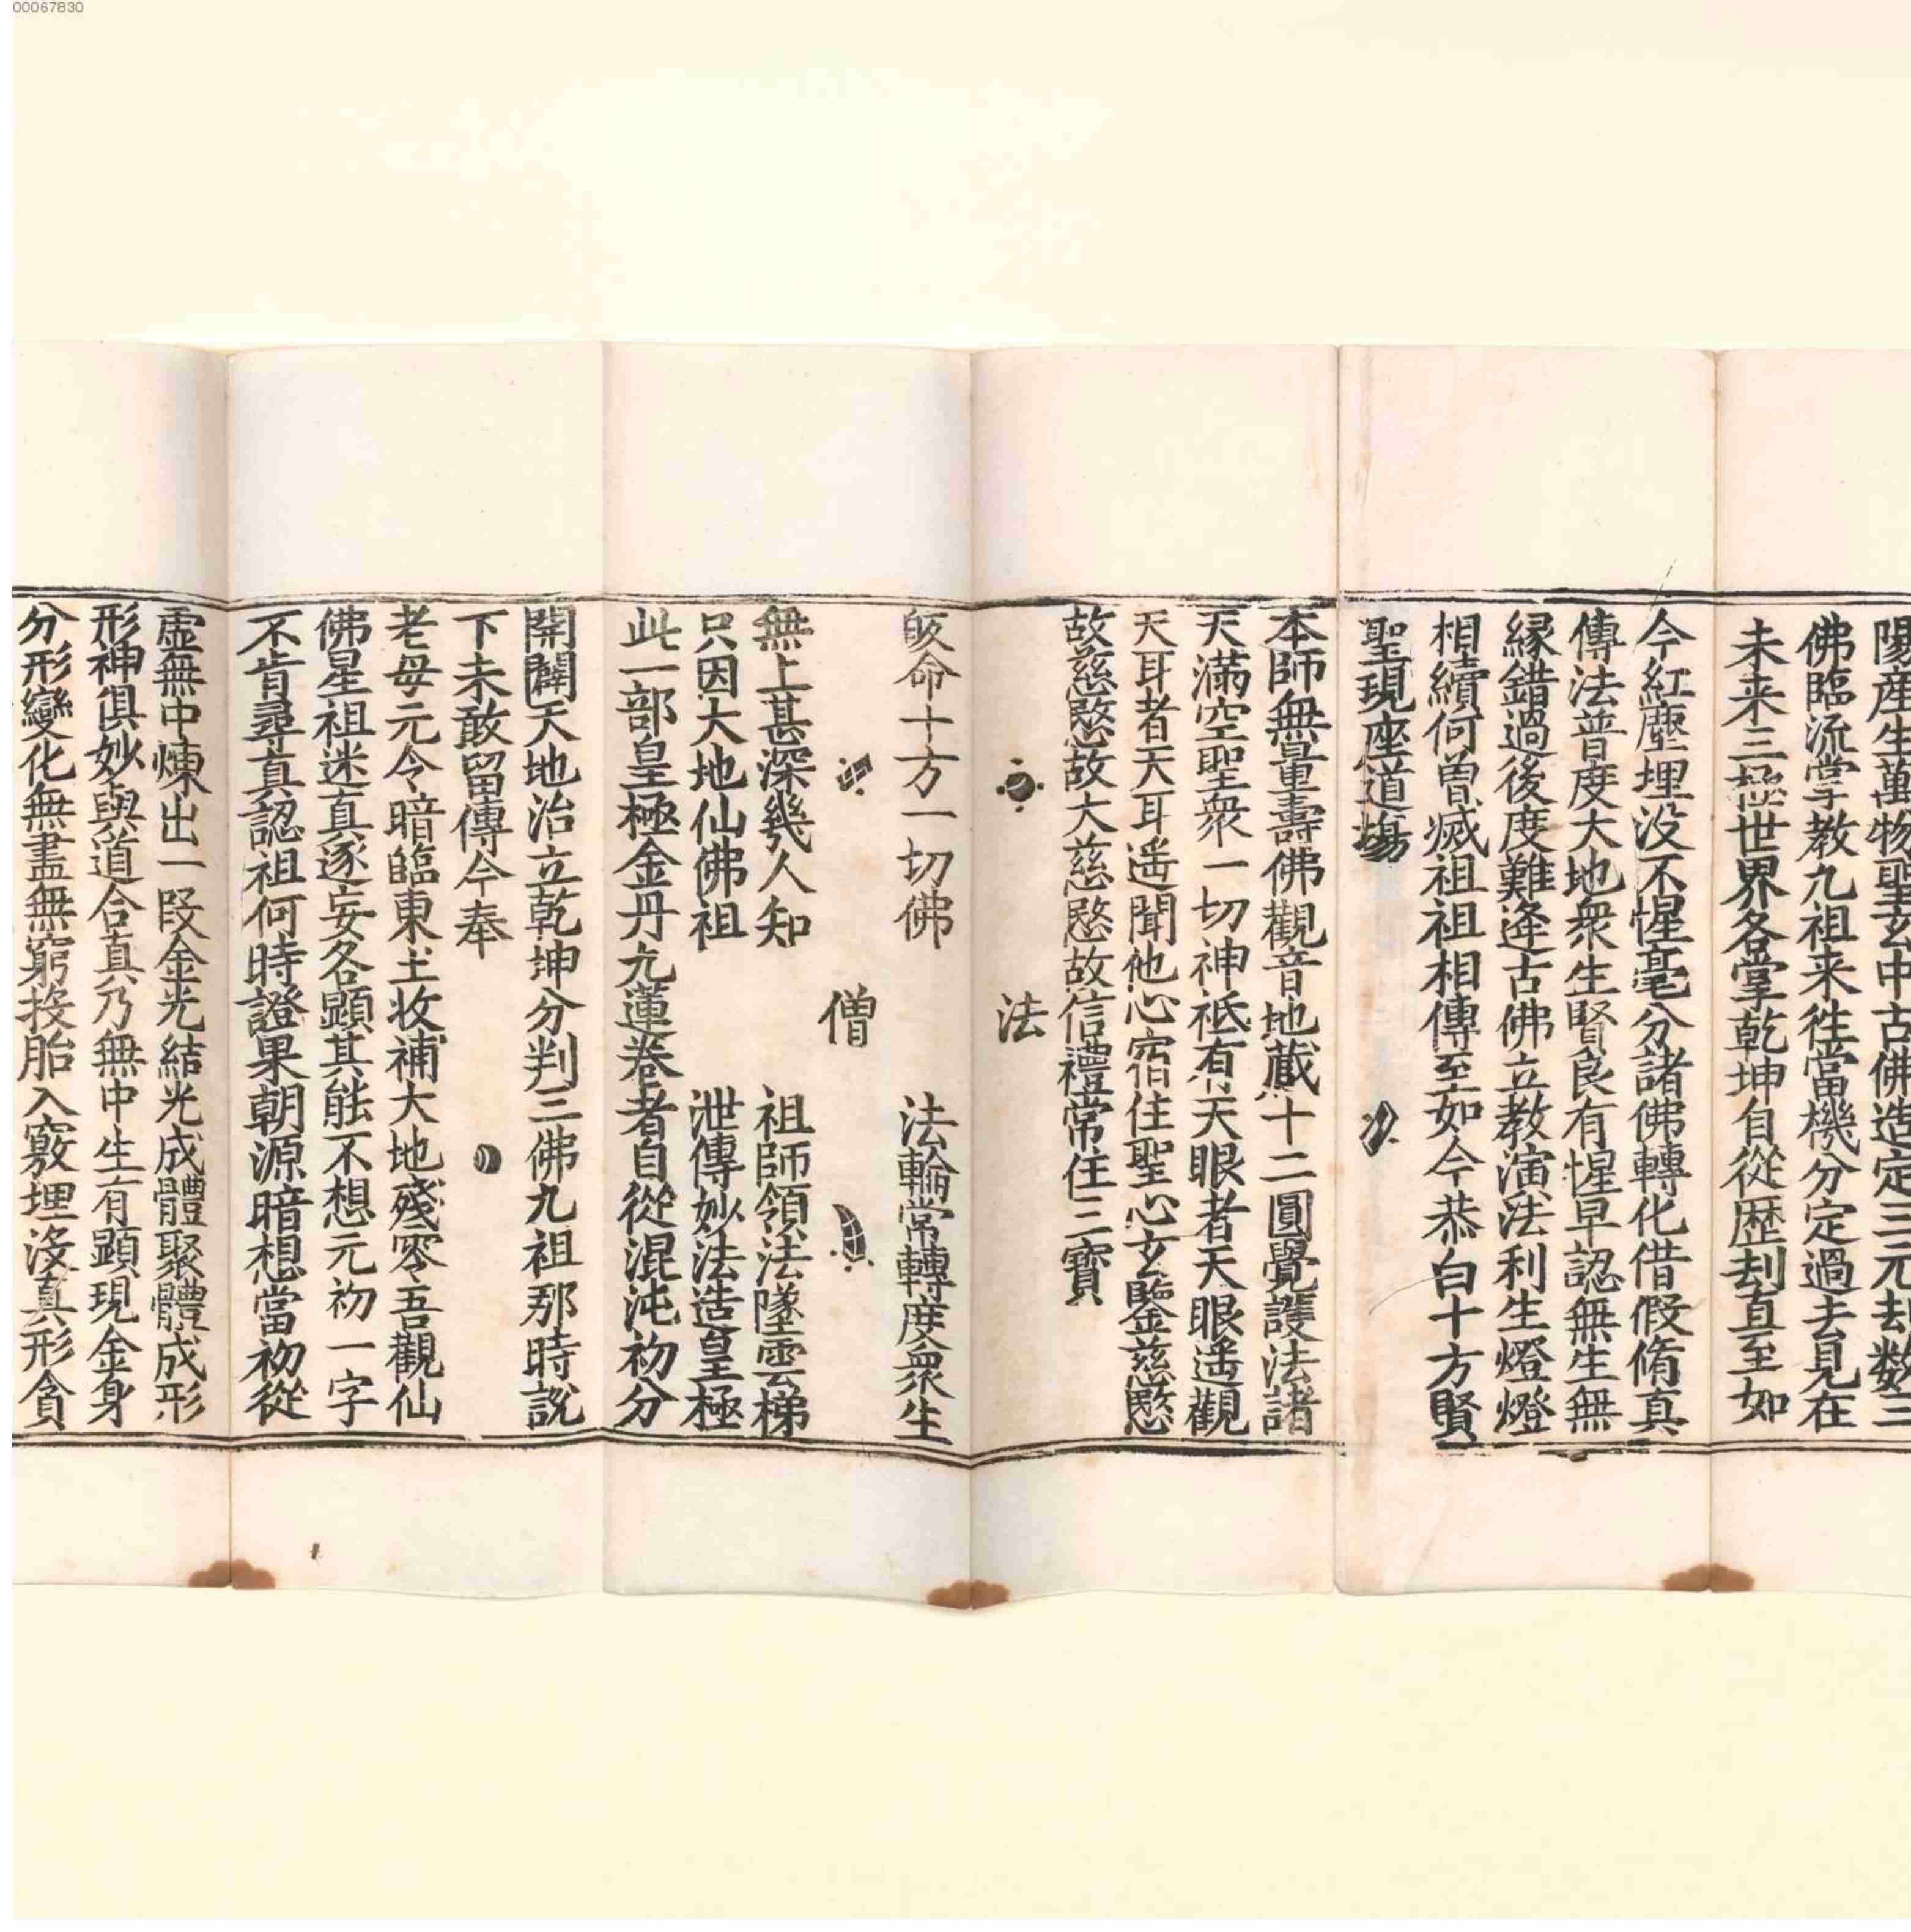 00067830
陽產生萬物聖玄中古佛造定三元劫数三
佛臨流掌教九祖来徃當機分定過去見在
未来三極世界各掌乾坤自從歴刦直至如
今紅塵埋没不惺毫分諸佛轉化借假脩真
傳法普度大地衆生賢良有惺早認無生無
緣錯過後度難逢古佛立教演法利生燈燈
相續何曾㓕祖祖相傳至如今恭白十方賢
聖現座道塲
本師無量壽佛觀音地藏十二圓覺護法諸
天滿空聖衆一切神祇有天眼者天眼遙觀
天耳者天耳遙聞他心宿住聖心玄鑒慈愍
故慈愍故大慈愍故信禮常住三寶
法
皈命十方一切佛 法輪常轉度衆生
僧
無上甚深幾人知 祖師領法墜雲梯
只因大地仙佛祖 泄傳妙法造皇極
此一部皇極金丹九蓮卷者自從混沌初分
開闢天地治立乾坤分判三佛九祖那時説
下未敢留傳今奉
老母元令暗臨東土收補大地殘零吾觀仙
佛星祖迷真逐妄各顯其能不想元初一字
不肯尋真認祖何時證果朝源暗想當初從
虛無中煉出一段金光結光成體聚體成形
形神俱妙與道合真乃無中生有顯現金身
分形變化無盡無窮投胎入竅埋没真形貪